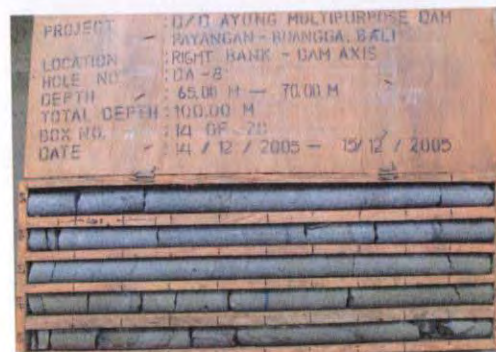 PROJECT : D/D AYUNG MULTIPURPOSE DAM
PAYANGAN - BUANGGA, BALI
LOCATION : RIGHT BANK - DAM AXIS
HOLE NO : DA - 8
DEPTH : 65.00 M — 70.00 M
TOTAL DEPTH : 100.00 M
BOX NO. : 14 OF 20
DATE : 14 / 12 / 2005 — 15 / 12 / 2005